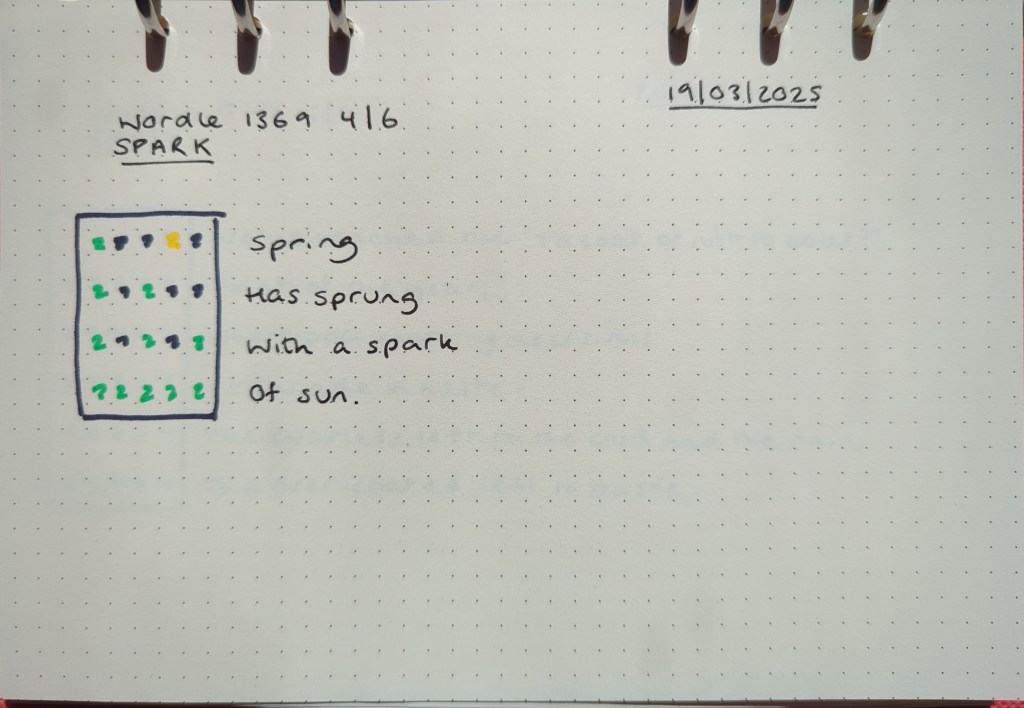 19/03/2025
Wordle 1369 4/6
SPARK
Spring
Has sprung
With a spark
Of sun.